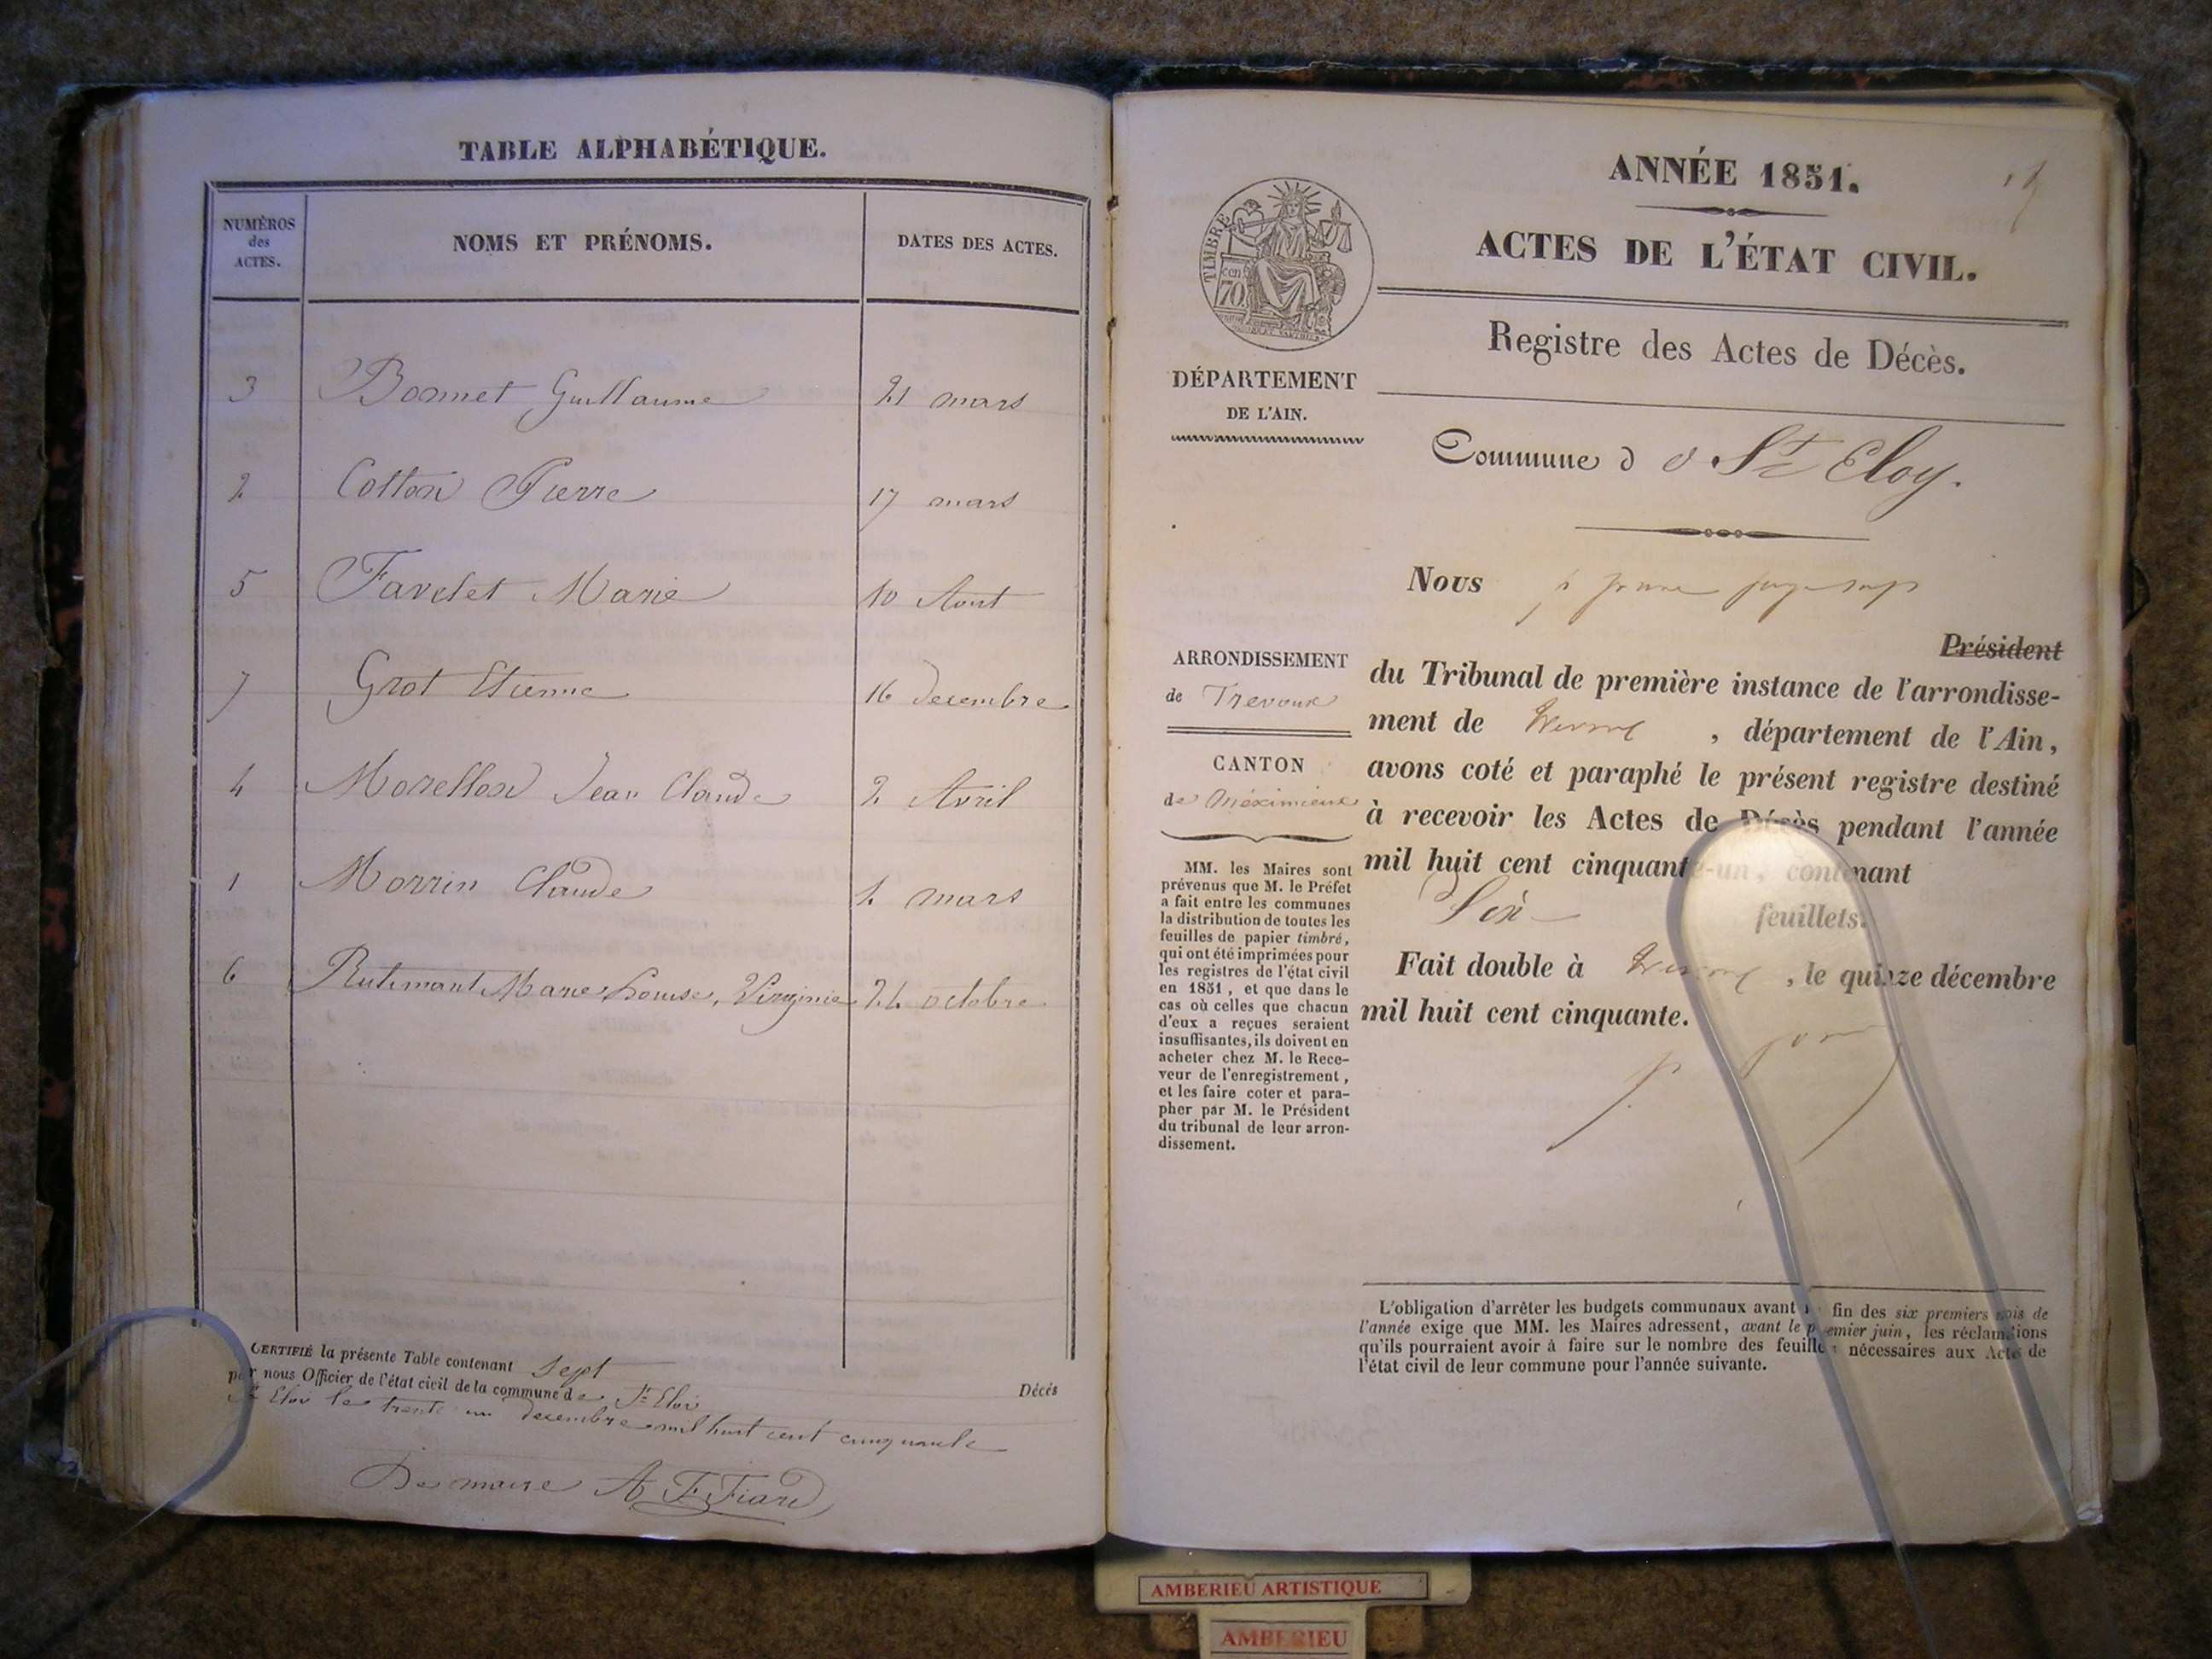 TABLE ALPHABÉTIQUE.
NUMÉROS des ACTES.
NOMS ET PRÉNOMS.
DATES DES ACTES.
3 Bonnet Guillaume 21 mars
2 Cotton Pierre 17 mars
5 Favelet Marie 10 Aout
7 Grot Etienne 16 Decembre
4 Morellon Jean Claude 2 Avril
1 Morrin Claude 1. mars
6 Marie Louise, Virginie 24 octobre
CERTIFIÉ la présente Table contenant sept
Décès
par nous Officier de l'état civil de la commune de St Eloi
St Eloi le trente un decembre mil huit cent cinquante
maire A F Fiard
ANNÉE 1851.
ACTES DE L'ÉTAT CIVIL.
Registre des Actes de Décès.
TIMBRE
cen
70
DÉPARTEMENT
DE L'AIN.
Commune d e St Eloy.
Nous
Président
ARRONDISSEMENT
de Trevoux
CANTON
de Meximieux
du Tribunal de première instance de l'arrondisse-
ment de Trevoux, département de l'Ain,
avons coté et paraphé le présent registre destiné
à recevoir les Actes de Décès pendant l'année
mil huit cent cinquante-un, contenant
Six feuillets.
Fait double à Trevoux, le quinze décembre
mil huit cent cinquante.
MM. les Maires sont
prévenus que M. le Préfet
a fait entre les communes
la distribution de toutes les
feuilles de papier timbré,
qui ont été imprimées pour
les registres de l'état civil
en 1851, et que dans le
cas où celles que chacun
d'eux a reçues seraient
insuffisantes, ils doivent en
acheter chez M. le Rece-
veur de l'enregistrement,
et les faire coter et para-
pher par M. le Président
du tribunal de leur arron-
dissement.
L'obligation d'arrêter les budgets communaux avant la fin des six premiers mois de
l'année exige que MM. les Maires adressent, avant le premier juin, les réclamations
qu'ils pourraient avoir à faire sur le nombre des feuilles nécessaires aux Actes de
l'état civil de leur commune pour l'année suivante.
AMBERIEU ARTISTIQUE
AMBERIEU